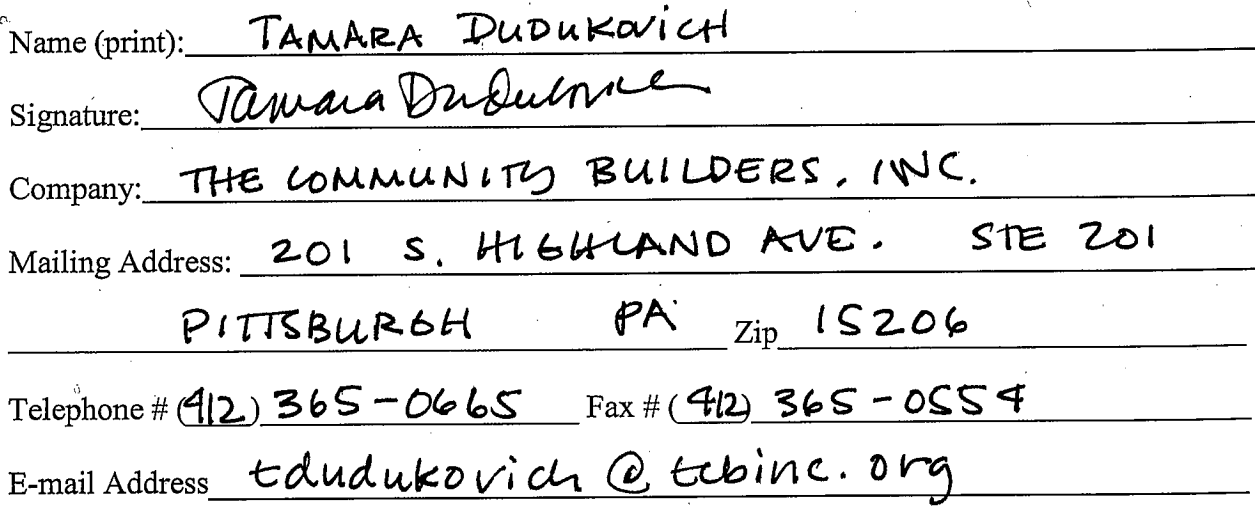 Name (print): TAMARA DUDUKOVICH
Signature: Tamara Dudukovich
Company: THE COMMUNITY BUILDERS, INC.
Mailing Address: 201 S. HIGHLAND AVE. STE 201
PITTSBURGH PA Zip 15206
Telephone # (412) 365-0665 Fax # (412) 365-0554
E-mail Address tdudukovich@tcbinc.org